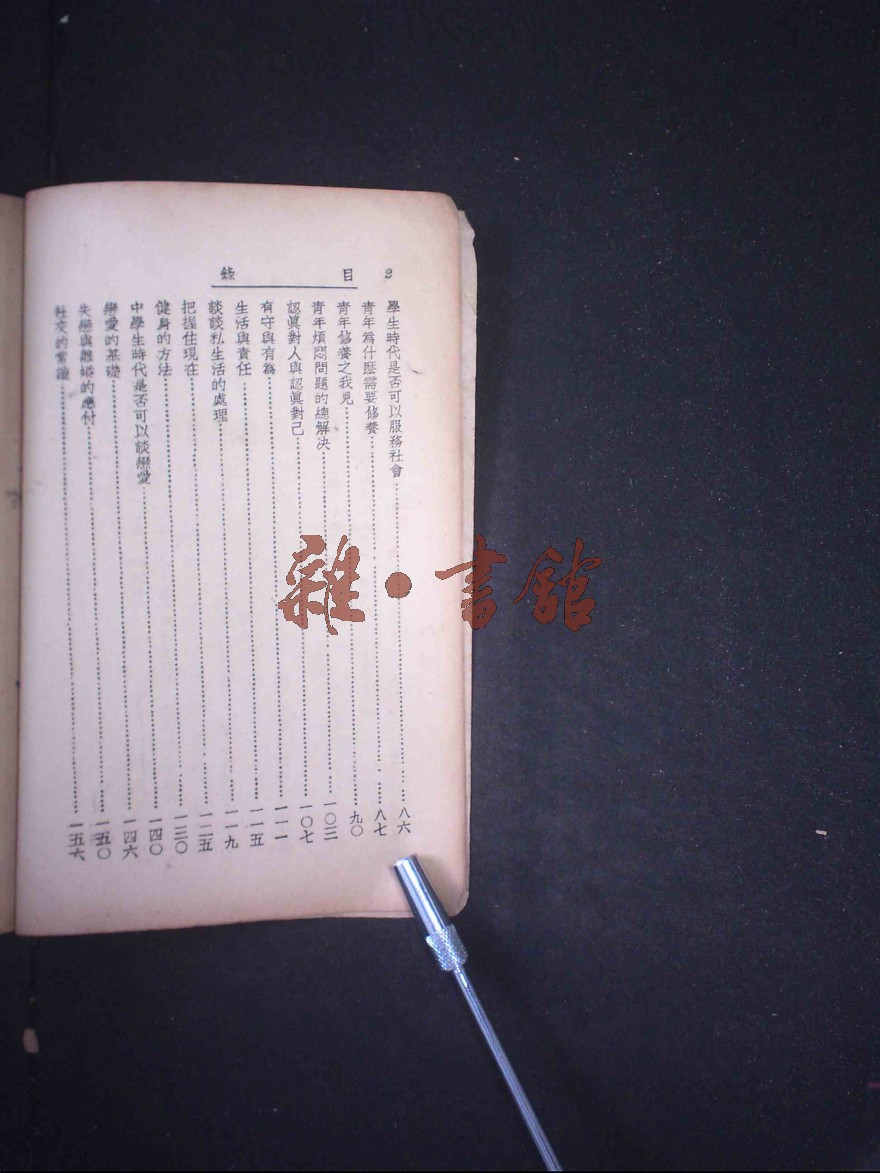 2 目錄
學生時代是否可以服務社會……八六
青年為什麼需要修養……八七
青年修養之我見……九〇
青年煩悶問題的總解決……一〇三
認眞對人與認眞對己……一〇七
有守與有為……一一一
生活與責任……一一五
談談私生活的處理……一一九
把握住現在……一二五
健身的方法……一三〇
中學生時代是否可以談戀愛……一四〇
戀愛的基礎……一四六
失戀與離婚的應付……一五〇
社交的常識……一五六
雜•書館